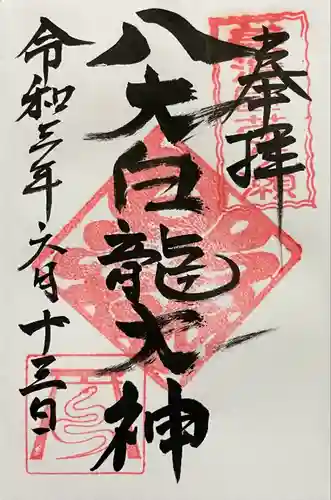 奉拝
八大白龍大神
令和三年六月十三日